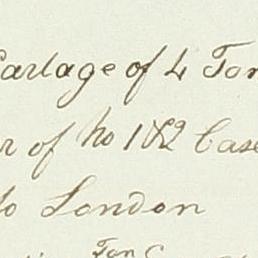 Cartage of 4 Ton
r of No 1 & 2 Case
to London
Ton C